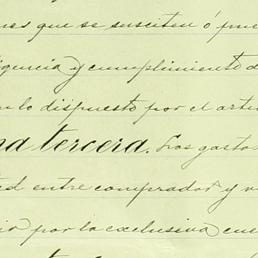 nes que se susciten ó pue
igencia y cumplimiento d
n lo dispuesto por el artu
na tercera. Los gastos
ad entre comprador y v
por la exclusiva cue